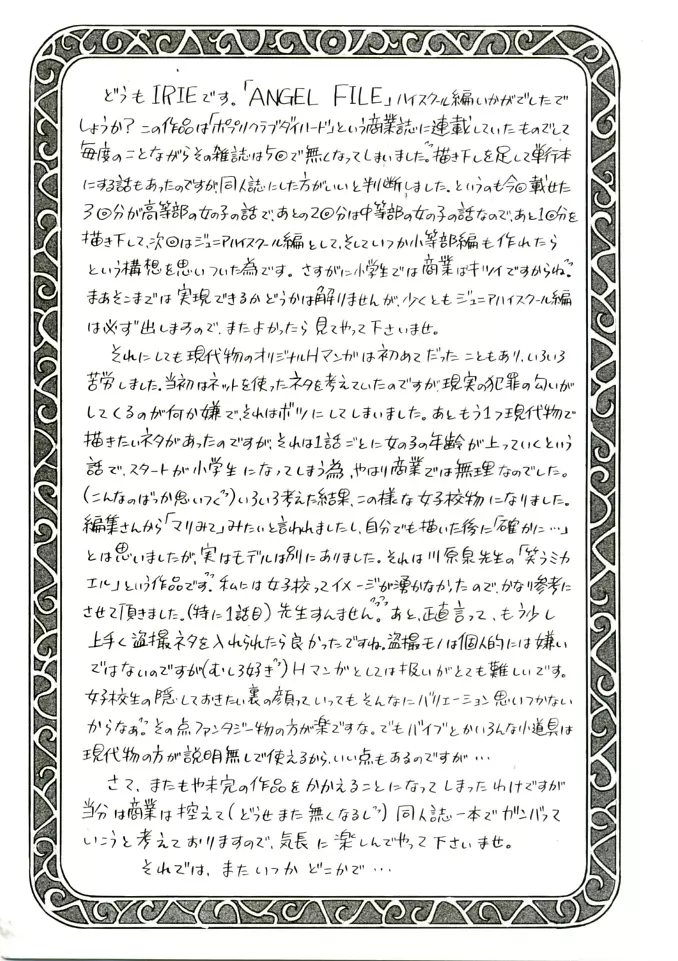 どうもIRIEです。「ANGEL FILE」ハイスクール編いかがでしたで
しょうか？この作品は「ポプリクラブダイハード」という商業誌に連載していたものでして
毎度のことながらその雑誌は5回で無くなってしまいました。描き下しを足して単行本
にする話もあったのですが、同人誌にした方がいいと判断しました。というのも今回載せた
3回分が高等部の女の子の話で、あとの2回分は中等部の女の子の話なので、あと1回分を
描き下して、次回はジュニアハイスクール編として、そしていつか小等部編も作れたら
という構想を思いついた為です。さすがに小学生では商業はキツイですからね。
まあそこまでは実現できるかどうかは解りませんが、少くともジュニアハイスクール編
は必ず出しますので、またよかったら見てやって下さいませ。
それにしても現代物のオリジナルHマンガは初めてだったこともあり、いろいろ
苦労しました。当初はネットを使ったネタを考えていたのですが、現実の犯罪の匂いが
してくるのが何か嫌で、それはボツにしてしまいました。あともう1つ現代物で
描きたいネタがあったのですが、それは1話ごとに女の子の年齢が上っていくという
話で、スタートが小学生になってしまう為、やはり商業では無理なのでした。
(こんなのばっか思いつく)いろいろ考えた結果、この様な女子校物になりました。
編集さんから「マリみて」みたいと言われましたし、自分でも描いた後に「確かに…」
とは思いましたが、実はモデルは別にありました。それは川原泉先生の「笑うミカ
エル」という作品です。私には女子校ってイメージが湧かなかったので、かなり参考に
させて頂きました。(特に1話目)先生すんません。あと、正直言って、もう少し
上手く盗撮ネタを入れられたら良かったですね。盗撮モノは個人的には嫌い
ではないのですが(むしろ好き)Hマンガとしては扱いがとても難しいです。
女子校生の隠しておきたい裏の顔っていってもそんなにバリエーション思いつかない
からなぁ。その点ファンタジー物の方が楽ですな。でもバイブとかいろんな小道具は
現代物の方が説明無しで使えるから、いい点もあるのですが…
さて、またもや未完の作品をかかえることになってしまったわけですが
当分は商業は控えて(どうせまた無くなるし)同人誌一本でガンバって
いこうと考えておりますので、気長に楽しんでやって下さいませ。
それでは、またいつかどこかで…